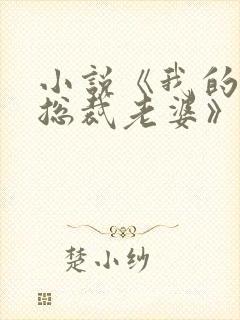 小説《我的
总裁老婆》
楚小纱